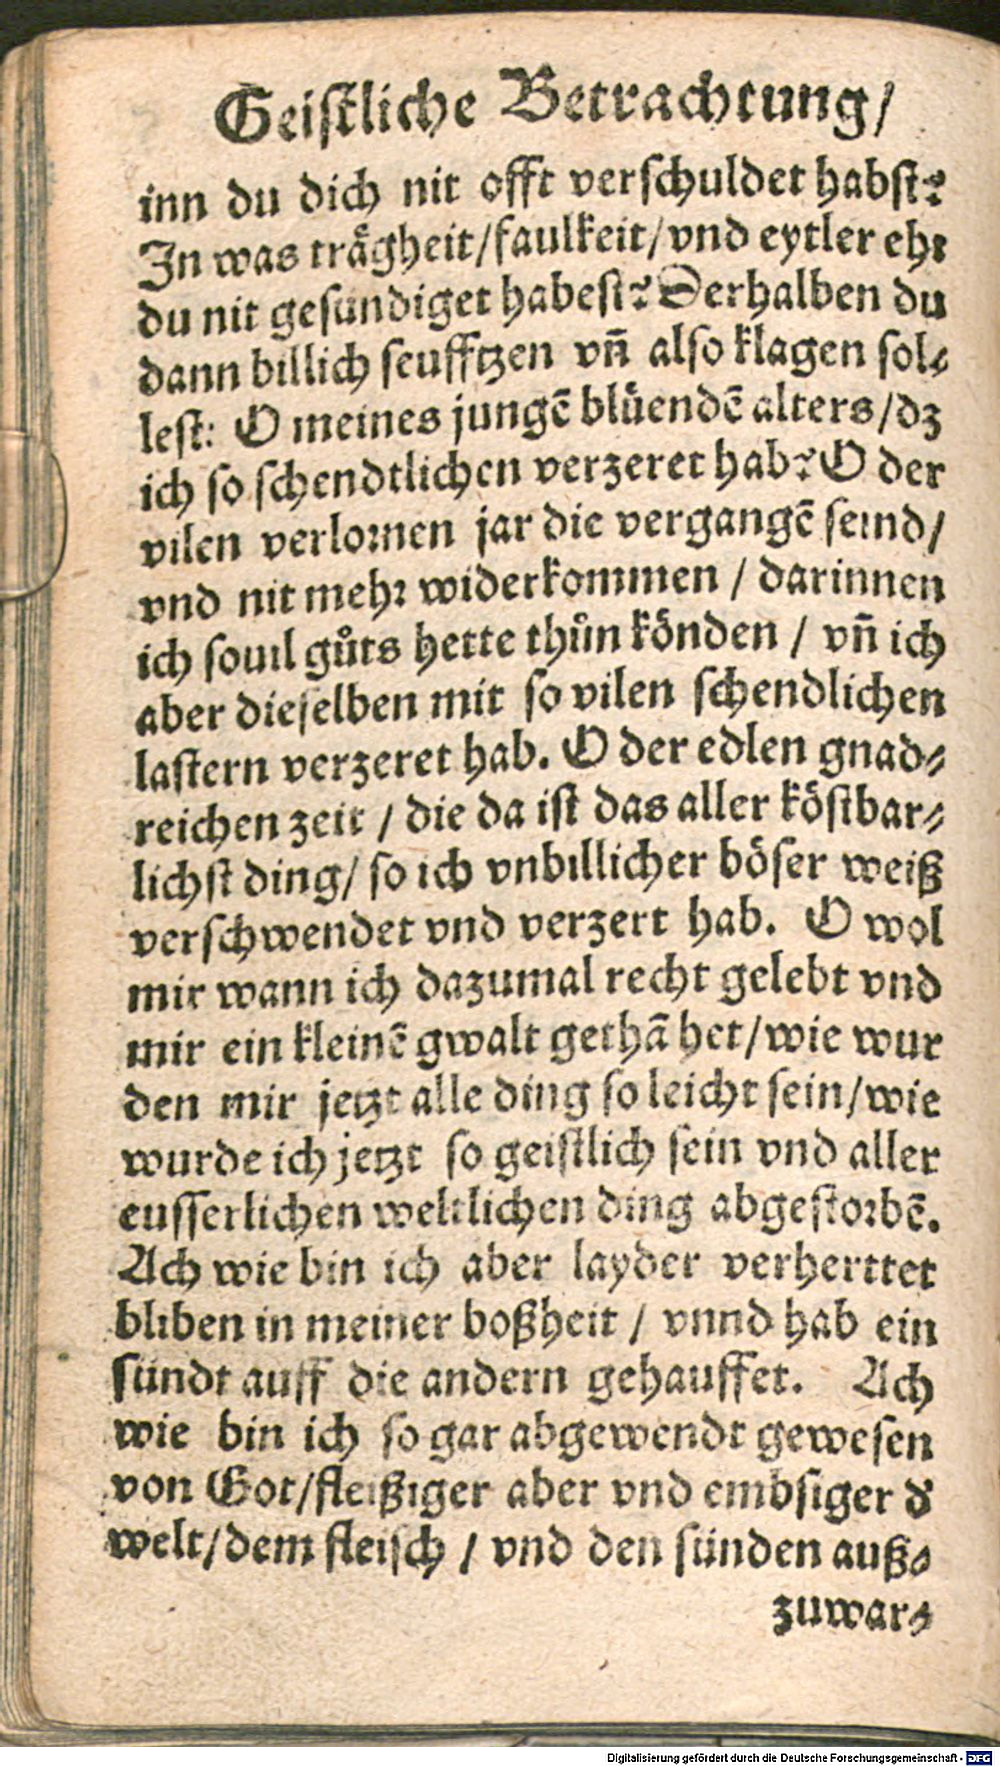 Geistliche Betrachtung/
inn du dich nit offt verschuldet habst?
In was trägheit/faulkeit/vnd eytler ehr
du nit gesündiget habest? Derhalben du
dann billich seufftzen vñ also klagen sol-
lest: O meines jungẽ blüendẽ alters/dz
ich so schendtlichen verzeret hab? O der
vilen verlornen jar die vergangẽ seind/
vnd nit mehr widerkommen / darinnen
ich souil gůts hette thůn könden / vñ ich
aber dieselben mit so vilen schendlichen
lastern verzeret hab. O der edlen gnad-
reichen zeit / die da ist das aller köstbar-
lichst ding/ so ich vnbillicher böser weiß
verschwendet vnd verzert hab. O wol
mir wann ich dazumal recht gelebt vnd
mir ein kleinẽ gwalt gethã het/wie wur
den mir jetzt alle ding so leicht sein/wie
wurde ich jetzt so geistlich sein vnd aller
eusserlichen weltlichen ding abgestorbẽ.
Ach wie bin ich aber layder verherttet
bliben in meiner boßheit / vnnd hab ein
sündt auff die andern gehauffet. Ach
wie bin ich so gar abgewendt gewesen
von Got/fleißiger aber vnd embsiger d'
welt/dem fleisch / vnd den sünden auß-
zuwar-
Digitalisierung gefördert durch die Deutsche Forschungsgemeinschaft - DFG